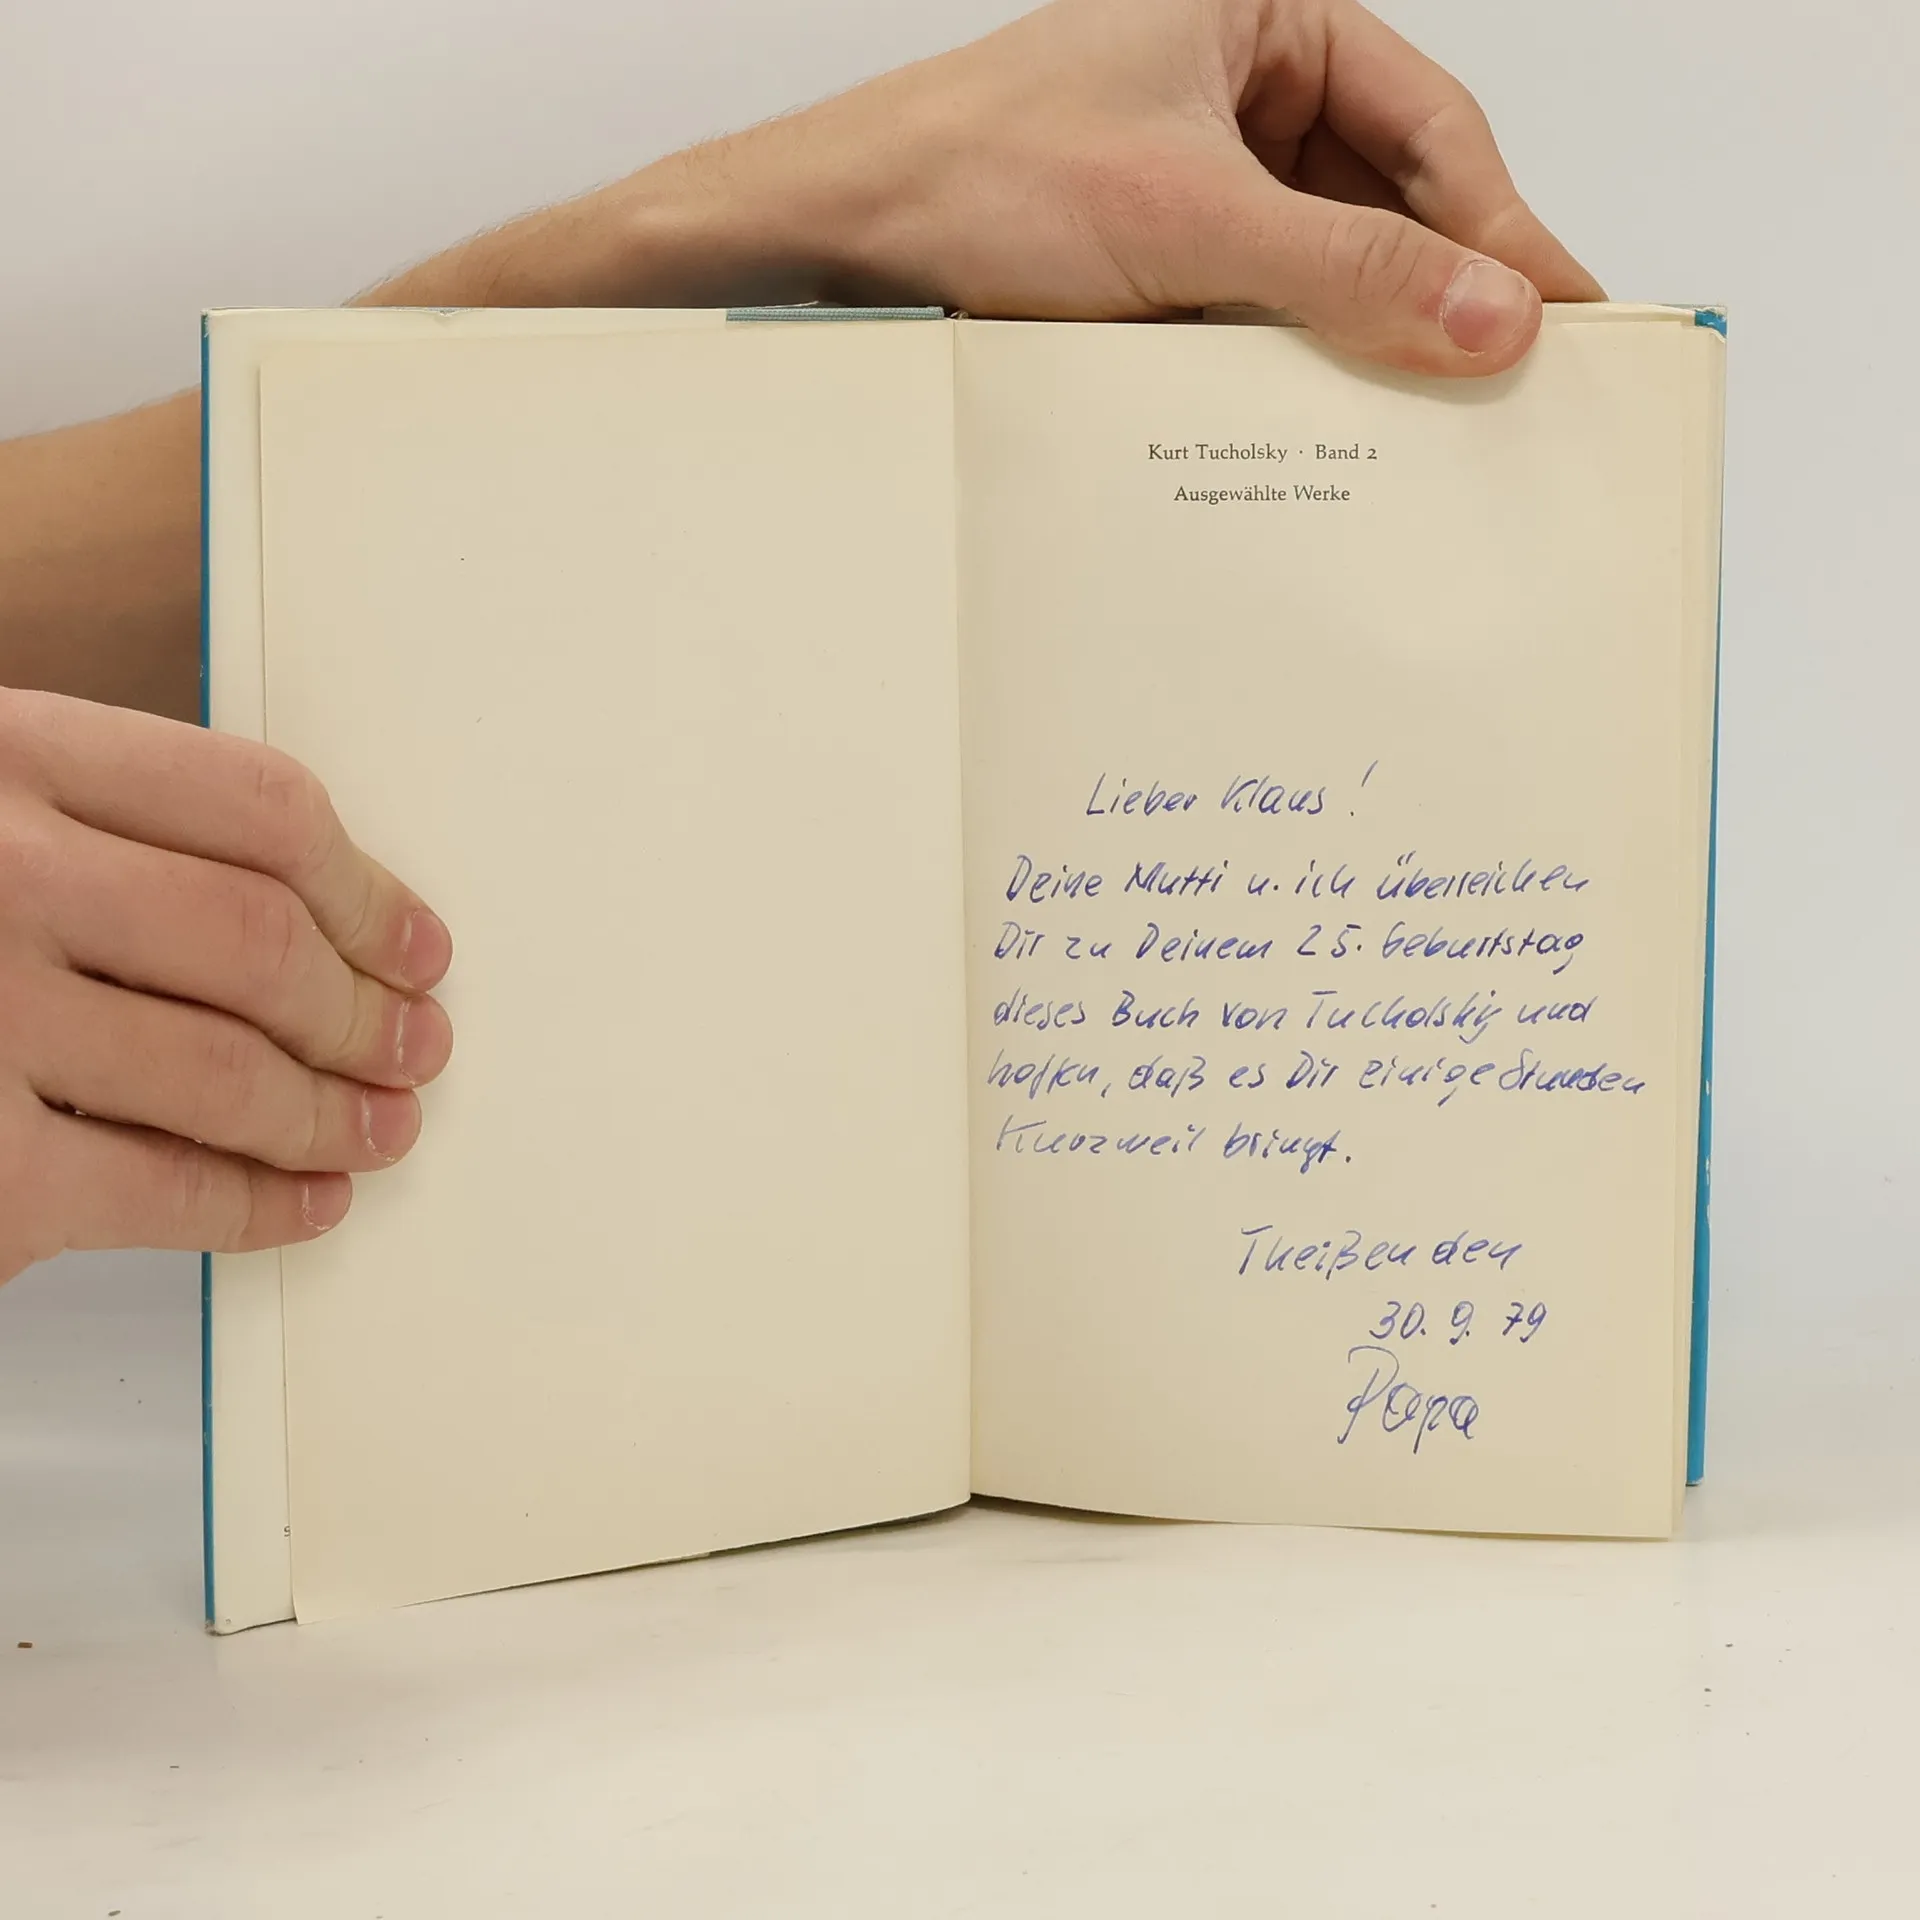 Kurt Tucholsky · Band 2
Ausgewählte Werke
Lieber Klaus !
Deine Mutti u. ich überreichen
Dir zu Deinem 25. Geburtstag
dieses Buch von Tucholsky und
hoffen, daß es Dir einige Stunden
Kurzweil bringt.
Theißen den
30. 9. 79
Papa